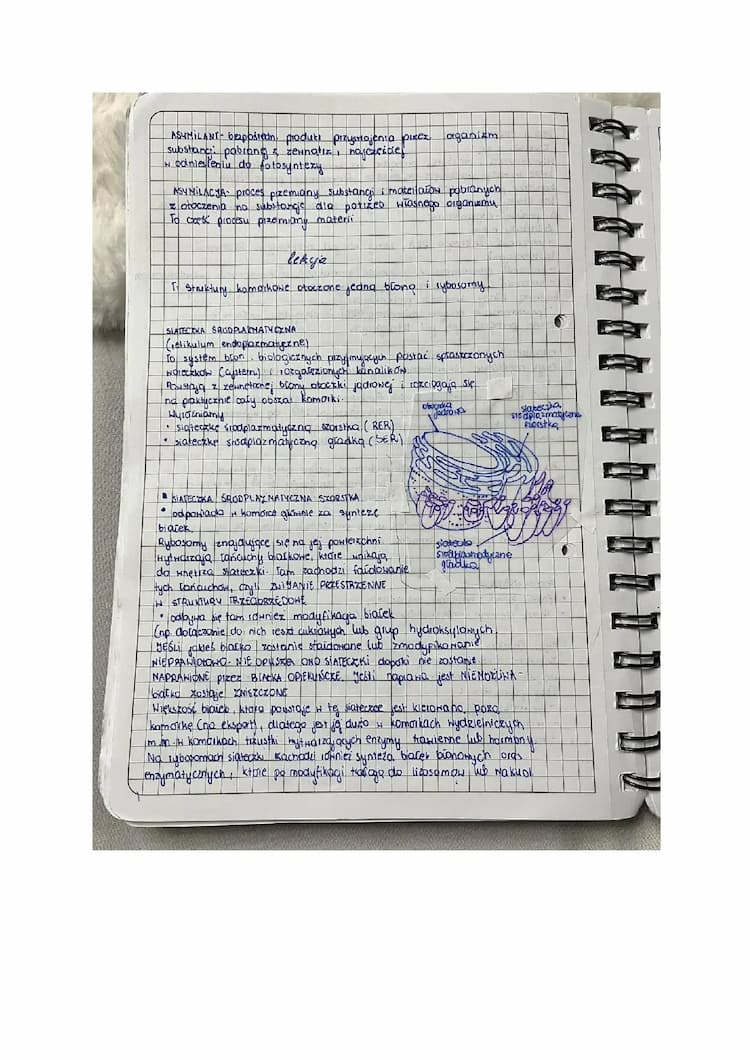 ASYMILANT- bezpośredni produkt przyswojenia przez organizm
substancji pobraną z zewnątrz, najczęściej
w odniesieniu do fotosyntezy
ASYMILACJA- proces przemiany substancji i materiałów pobranych
z otoczenia na substancje dla potrzeb własnego organizmu
To część procesu przemiany materii
lekcja
T: Struktury komórkowe otoczone jedną błoną i rybosomy.
SIATECZKA ŚRODPLAZMATYCZNA
(retikulum endoplazmatyczne)
To system błon biologicznych przyjmujących postać spłaszczonych
woreczków (cystern) i rozgałęzionych kanalików
Powstają z zewnętrznej błony otoczki jądrowej i rozciągają się
na praktycznie cały obszar komórki.
Wyróżniamy
• siateczkę środplazmatyczną szorstką (RER)
• siateczkę środplazmatyczną gładką (SER)
otoczka
jądrowa
siateczka
środplazmatyczna
szorstka
siateczka
środplazmatyczna
gładka
▪ SIATECZKA ŚRODPLAZMATYCZNA SZORSTKA
• odpowiada w komórce głównie za syntezę
białek.
Rybosomy znajdujące się na jej powierzchni
wytwarzają łańcuchy białkowe, które wnikają
do wnętrza siateczki. Tam zachodzi fałdowanie
tych łańcuchów, czyli ZWIJANIE PRZESTRZENNE
W STRUKTURY TRZECIORZĘDOWE
• odbywa się tam również modyfikacja białek
(np dołączanie do nich reszt cukrowych lub grup hydroksylowych.
JEŚLI jakieś białko zostanie sfałdowane lub zmodyfikowane
NIEPRAWIDŁOWO- NIE OPUSZCZA ONO SIATECZKI dopóki nie zostanie
NAPRAWIONE przez BIAŁKA OPIEKUŃCZE. Jeśli naprawa jest NIEMOŻLIWA-
białko zostaje ZNISZCZONE
Większość białek, która powstaje w tej siateczce jest kierowana poza
komórkę (na eksport), dlatego jest jej dużo w komórkach wydzielniczych
m.in. w komórkach trzustki wytwarzających enzymy trawienne lub hormony
Na rybosomach siateczki zachodzi również synteza białek błonowych oraz
enzymatycznych, które po modyfikacji trafiają do lizosomów lub wakuol